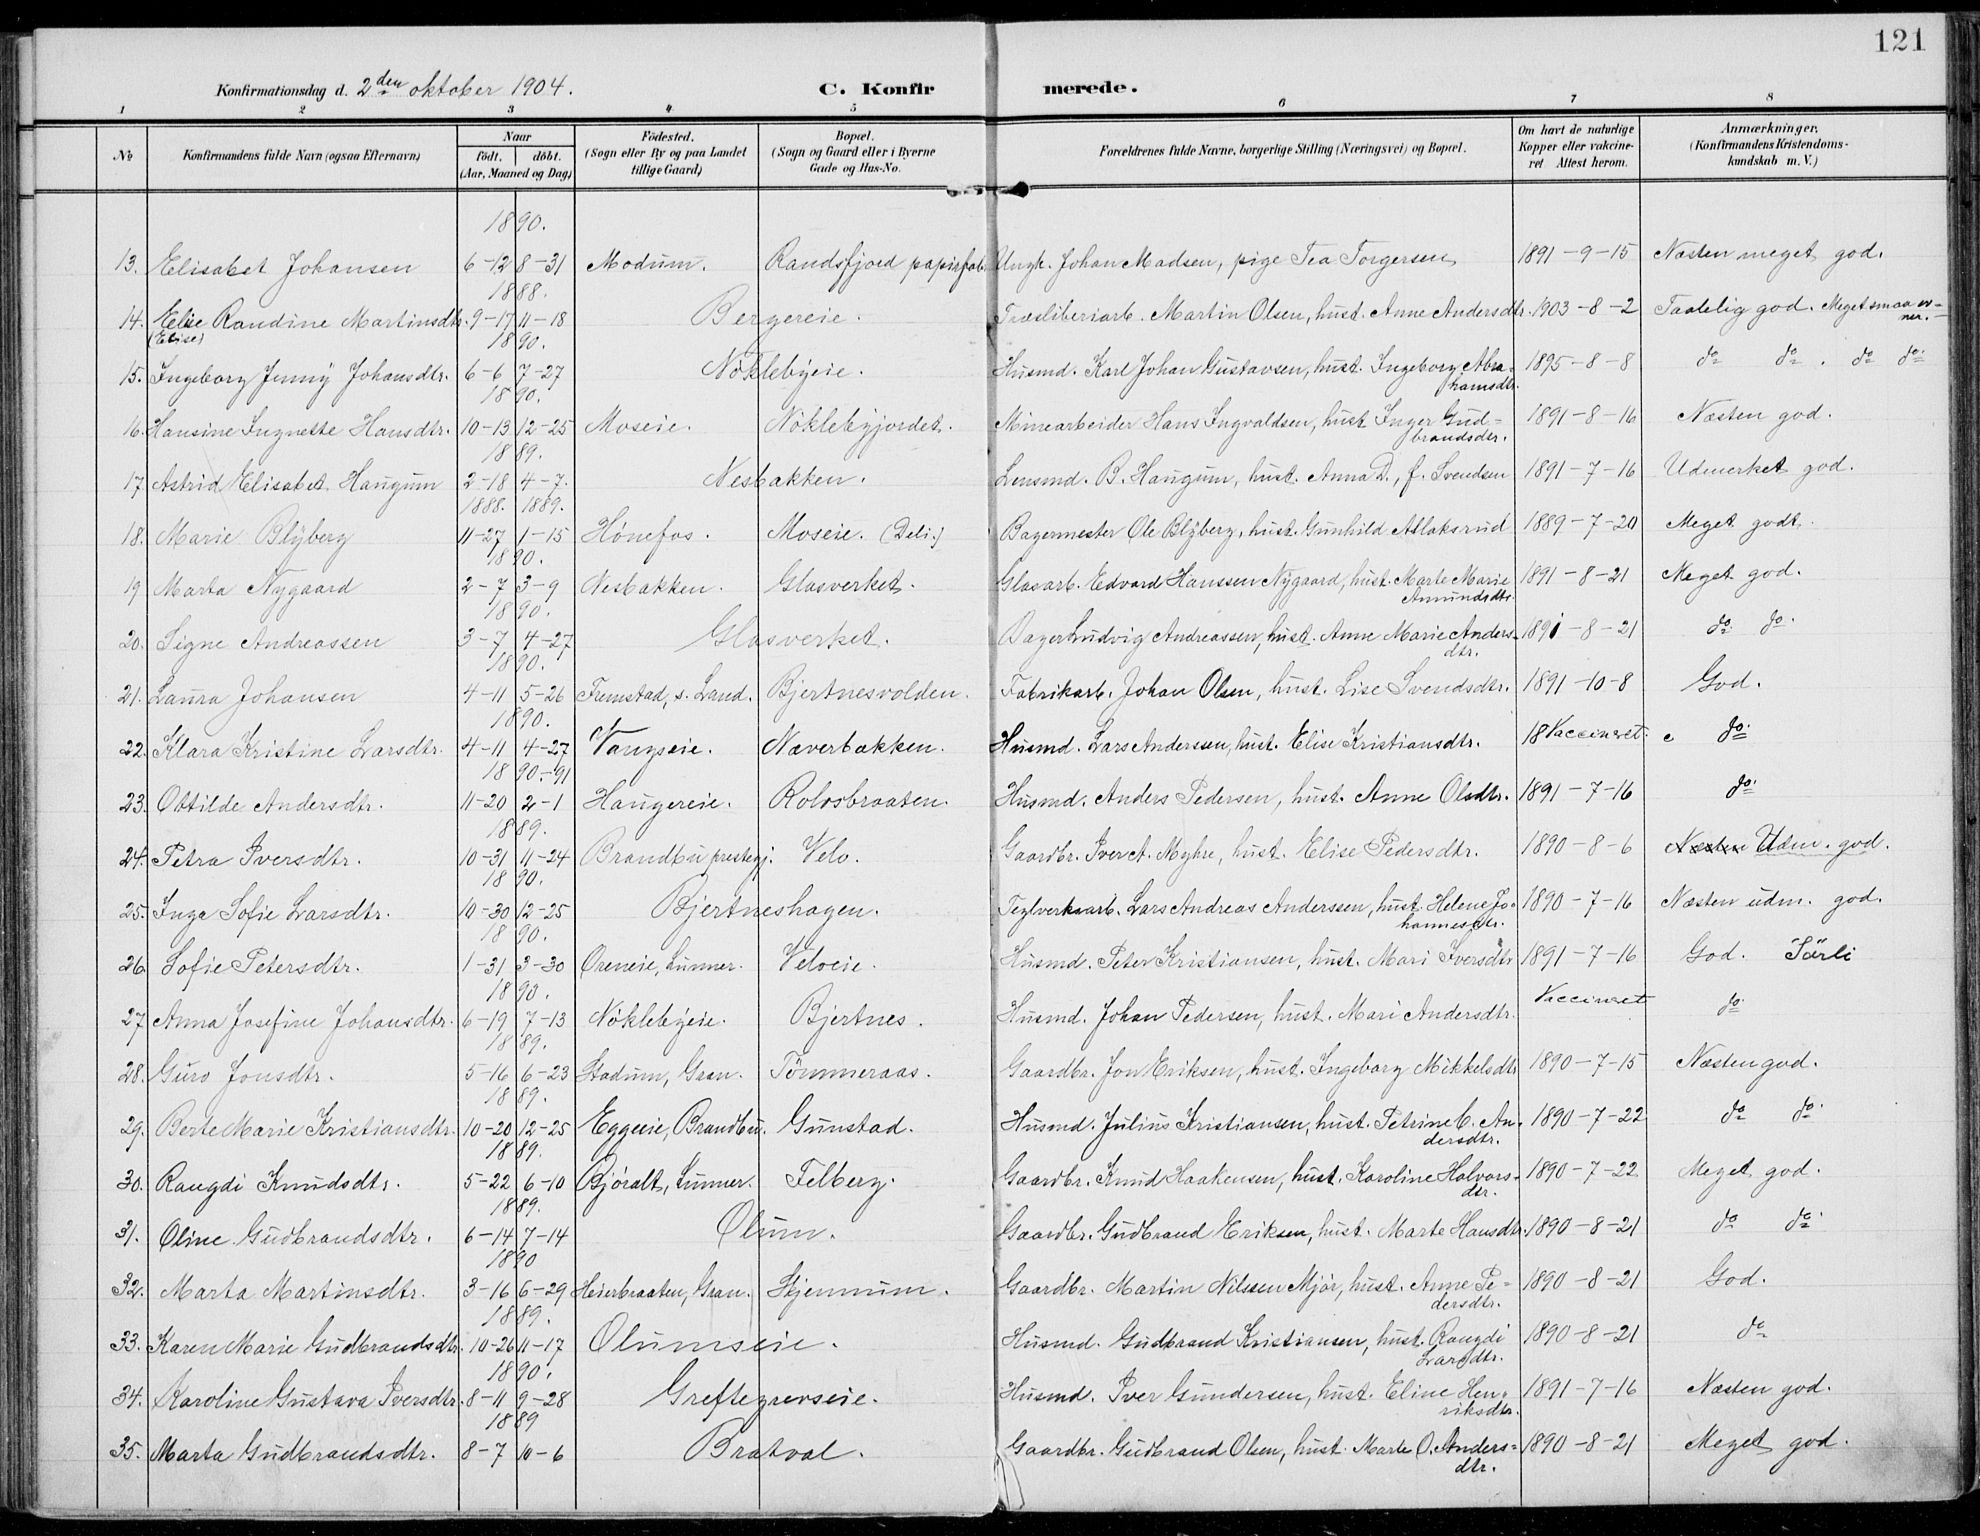 121
Konfirmationsdag d. 2den oktober 1904. C. Konfirmerede.
1 2 3 4 5 6 7 8
No Konfirmandens fulde Navn (ogsaa Efternavn) Naar født. døbt. (Aar, Maaned og Dag) Fødested. (Sogn eller By og paa Landet tillige Gaard) Bopæl. (Sogn og Gaard eller i Byerne Gade og Hus-No. Forældrenes fulde Navne, borgerlige Stilling (Næringsvei) og Bopæl. Om havt de naturlige Kopper eller vaccineret Attest herom. Anmærkninger. (Konfirmandens Kristendomskundskab m. V.)
1890.
13. Elisabet Johansen 6-12 8-31 Modum. Randsfjord papirfab. Ungk. Johan Madsen, pige Tea Torgersen 1891-9-15 Næsten meget god.
1888.
14. Elise Randine Martinsdtr. 9-17 11-18 Bergereie. Træsliberiarb. Martin Olsen, hust. Anne Andersdtr. 1903-8-2 Taalelig god. Meget smaa ev-
(Elise) ner.
1890.
15. Ingeborg Jenny Johansdtr. 6-6 7-27 Nøklebyeie. Husmd. Karl Johan Gustavsen, hust. Ingeborg Abra-
hamsdtr. 1895-8-8 do do. do do.
1890.
16. Hansine Ingnette Hansdtr. 10-13 12-25 Moseie. Nøklebyjordet. Minearbeider Hans Ingvaldsen, hust. Inger Gud-
brandsdtr. 1891-8-16 Næsten god.
1889.
17. Astrid Elisabet Haugum 2-18 4-7. Nesbakken. Lensmd. B. Haugum, hust. Anna D., f. Svendsen 1891-7-16 Udmerket god.
1888. 1889.
18. Marie Blyberg 11-27 1-15 Hønefos. Moseie. (Deli.) Bagermester Ole Blyberg, hust. Gunhild Aslaksrud 1889-7-20 Meget godt.
1890.
19 Marta Nygaard 2-7 3-9 Nesbakken. Glasverket. Glasarb. Edvard Hanssen Nygaard, hust. Marte Marie
Amundsdtr. 1891-8-21 Meget god.
1890.
20. Signe Andreassen 3-7 4-27 Glasverket. Bager Ludvig Andreassen, hust. Anne Marie Anders-
dtr. 1891-8-21 do do.
1890.
21. Laura Johansen 4-11 5-26 Fremstad, s. Land. Bjertnesvolden. Fabrikarb. Johan Olsen, hust. Lise Svendsdtr. 1891-10-8 God.
1890.
22. Klara Kristine Larsdtr. 4-11 4-27 Vangseie. Næverbakken. Husmd. Lars Anderssen, hust. Elise Kristiansdtr. 18 Vaccineret. do.
1890.-91
23. Obtilde Andersdtr. 11-20 2-1 Haugereie. Rolosbraaten. Husmd. Anders Pedersen, hust. Anne Olsdtr. 1891-7-16 do.
1889.
24. Petra Iversdtr. 10-31 11-24 Brandbu prestegj. Velo. Gaardbr. Iver A. Myhre, hust. Elise Pedersdtr. 1890-8-6 Næsten Udm. god.
1890.
25. Inga Sofie Larsdtr. 10-30 12-25 Bjertneshagen. Teglverksarb. Lars Andreas Anderssen, hust. Helene Jo-
hannesdtr. 1890-7-16 Næsten udm. god.
1890.
26 Sofie Petersdtr. 1-31 3-30 Oreneie, Lunner. Veloeie. Husmd. Peter Kristiansen, hust. Mari Iversdtr 1891-7-16 God. Sørli
1890.
27 Anna Josefine Johansdtr. 6-19 7-13 Nøklebyeie. Bjertnes. Husmd. Johan Pedersen, hust. Mari Andersdtr. Vaccineret do.
1889.
28. Guro Jonsdtr. 5-16 6-23 Stadum, Gran. Tømmeraas. Gaardbr. Jon Eriksen, hust. Ingeborg Mikkelsdtr 1890-7-15 Næsten god.
1889.
29. Berte Marie Kristiansdtr. 10-20 12-25 Eggeeie, Brandbu. Gunstad. Husmd. Julius Kristiansen, hust. Petrine C. An-
dersdtr. 1890-7-22 do do.
1889.
30. Rangdi Knudsdtr. 5-22 6-10 Bjøralt, Lunner. Felberg. Gaardbr. Knud Haakensen, hust. Karoline Halvors-
dtr. 1890-7-22 Meget god.
1889.
31. Oline Gudbrandsdtr. 6-14 7-14 Olum. Gaardbr. Gudbrand Eriksen, hust. Marte Hansdtr. 1890-8-21 do do.
1890
32. Marta Martinsdtr. 3-16 6-29 Heierbraaten, Gran. Hjennum. Gaardbr. Martin Nilssen Mjør, hust. Anne Pe-
dersdtr. 1890-8-21 God.
1889.
33. Karen Marie Gudbrandsdtr. 10-26 11-17 Olumseie. Husmd. Gudbrand Kristiansen, hust. Rangdi
Larsdtr. 1890-8-21 do
1890.
34. Karoline Gustava Iversdtr. 8-11 9-28 Greftegrevseie. Husmd. Iver Gundersen, hust. Eline Hen-
riksdtr. 1891-7-16 Næsten god.
1889
35. Marta Gudbrandsdtr. 8-7 10-6 Bratval. Gaardbr. Gudbrand Olsen, hust. Marte O. Anders-
dtr. 1890-8-21 Meget god.